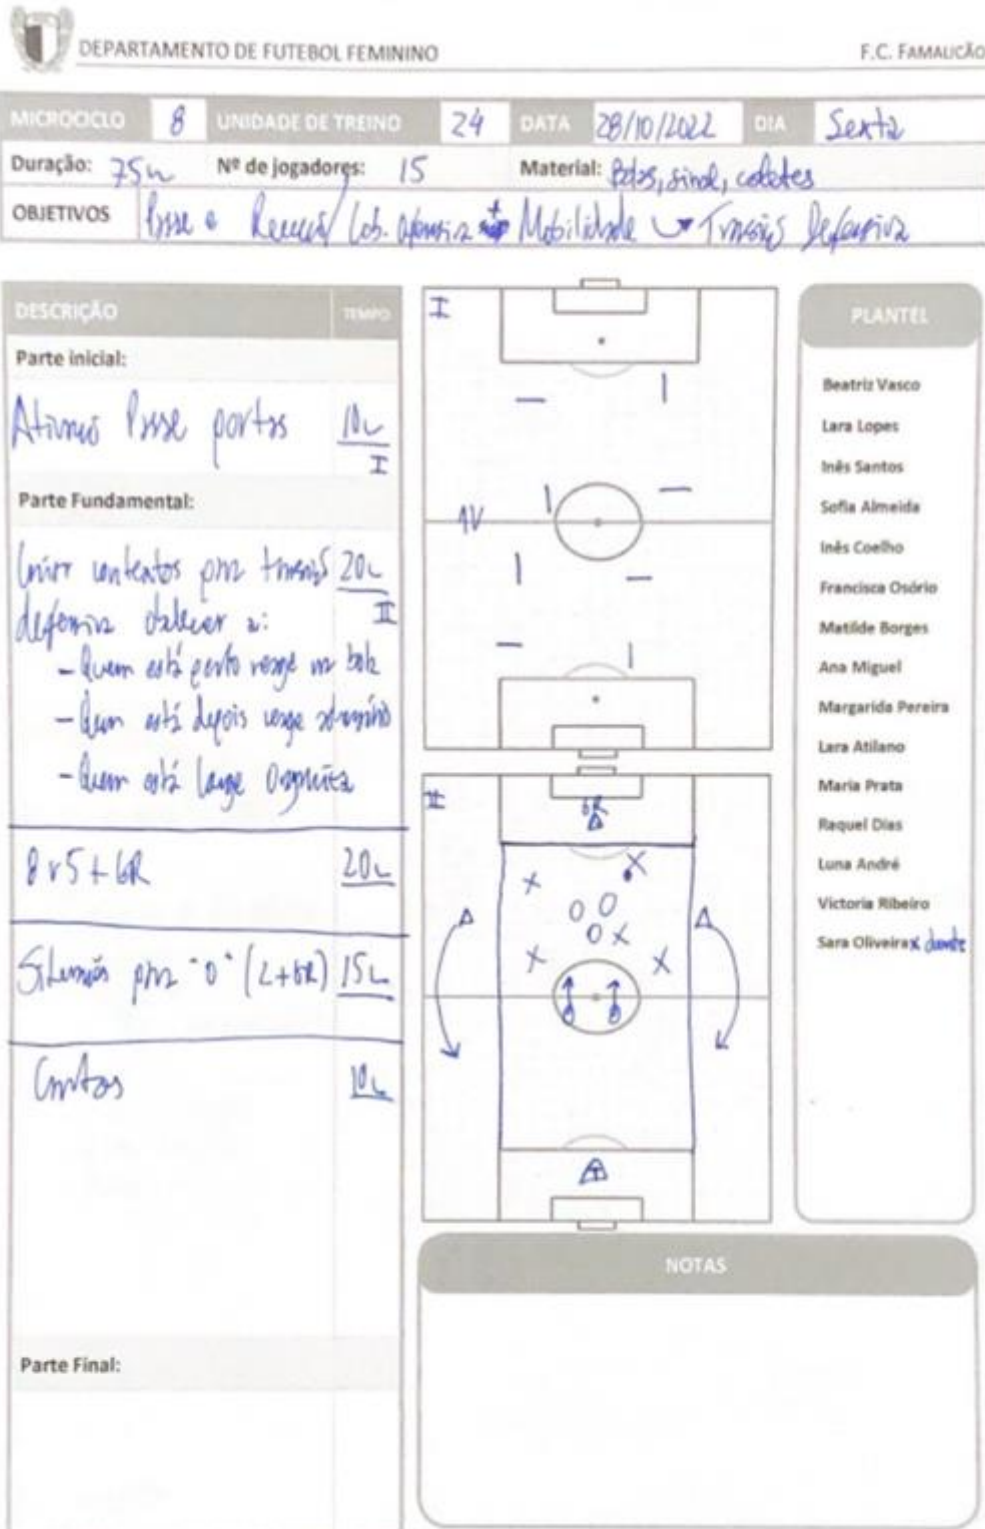 DEPARTAMENTO DE FUTEBOL FEMININO
F.C. FAMALICÃO
MICROCICLO 8 UNIDADE DE TREINO 24 DATA 28/10/2022 DIA Sexta
Duração: 75m Nº de jogadores: 15 Material: Bolas, sinal, coletes
OBJETIVOS Passe e Receção/ Cob. ofensiva + Mobilidade Transição Defensiva
DESCRIÇÃO TEMPO
Parte inicial:
Ativação Passe portas 10m
I
Parte Fundamental:
Criar contextos para transição 20m
II
defensiva obedecer a:
- Quem está perto reage na bola
- Quem está depois reage
- Quem está longe Organiza
8v5+GR 20m
Situação para "0" (2+GR) 15m
10m
Parte Final:
I
1V
II
GR
PLANTEL
Beatriz Vasco
Lara Lopes
Inês Santos
Sofia Almeida
Inês Coelho
Francisca Osório
Matilde Borges
Ana Miguel
Margarida Pereira
Lara Atilano
Maria Prata
Raquel Dias
Luna André
Victoria Ribeiro
Sara Oliveira x doente
NOTAS